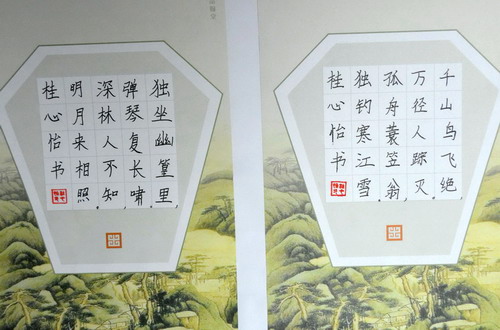 独坐幽篁里，
弹琴复长啸。
深林人不知，
明月来相照。
桂心怡书
千山鸟飞绝，
万径人踪灭。
孤舟蓑笠翁，
独钓寒江雪。
桂心怡书